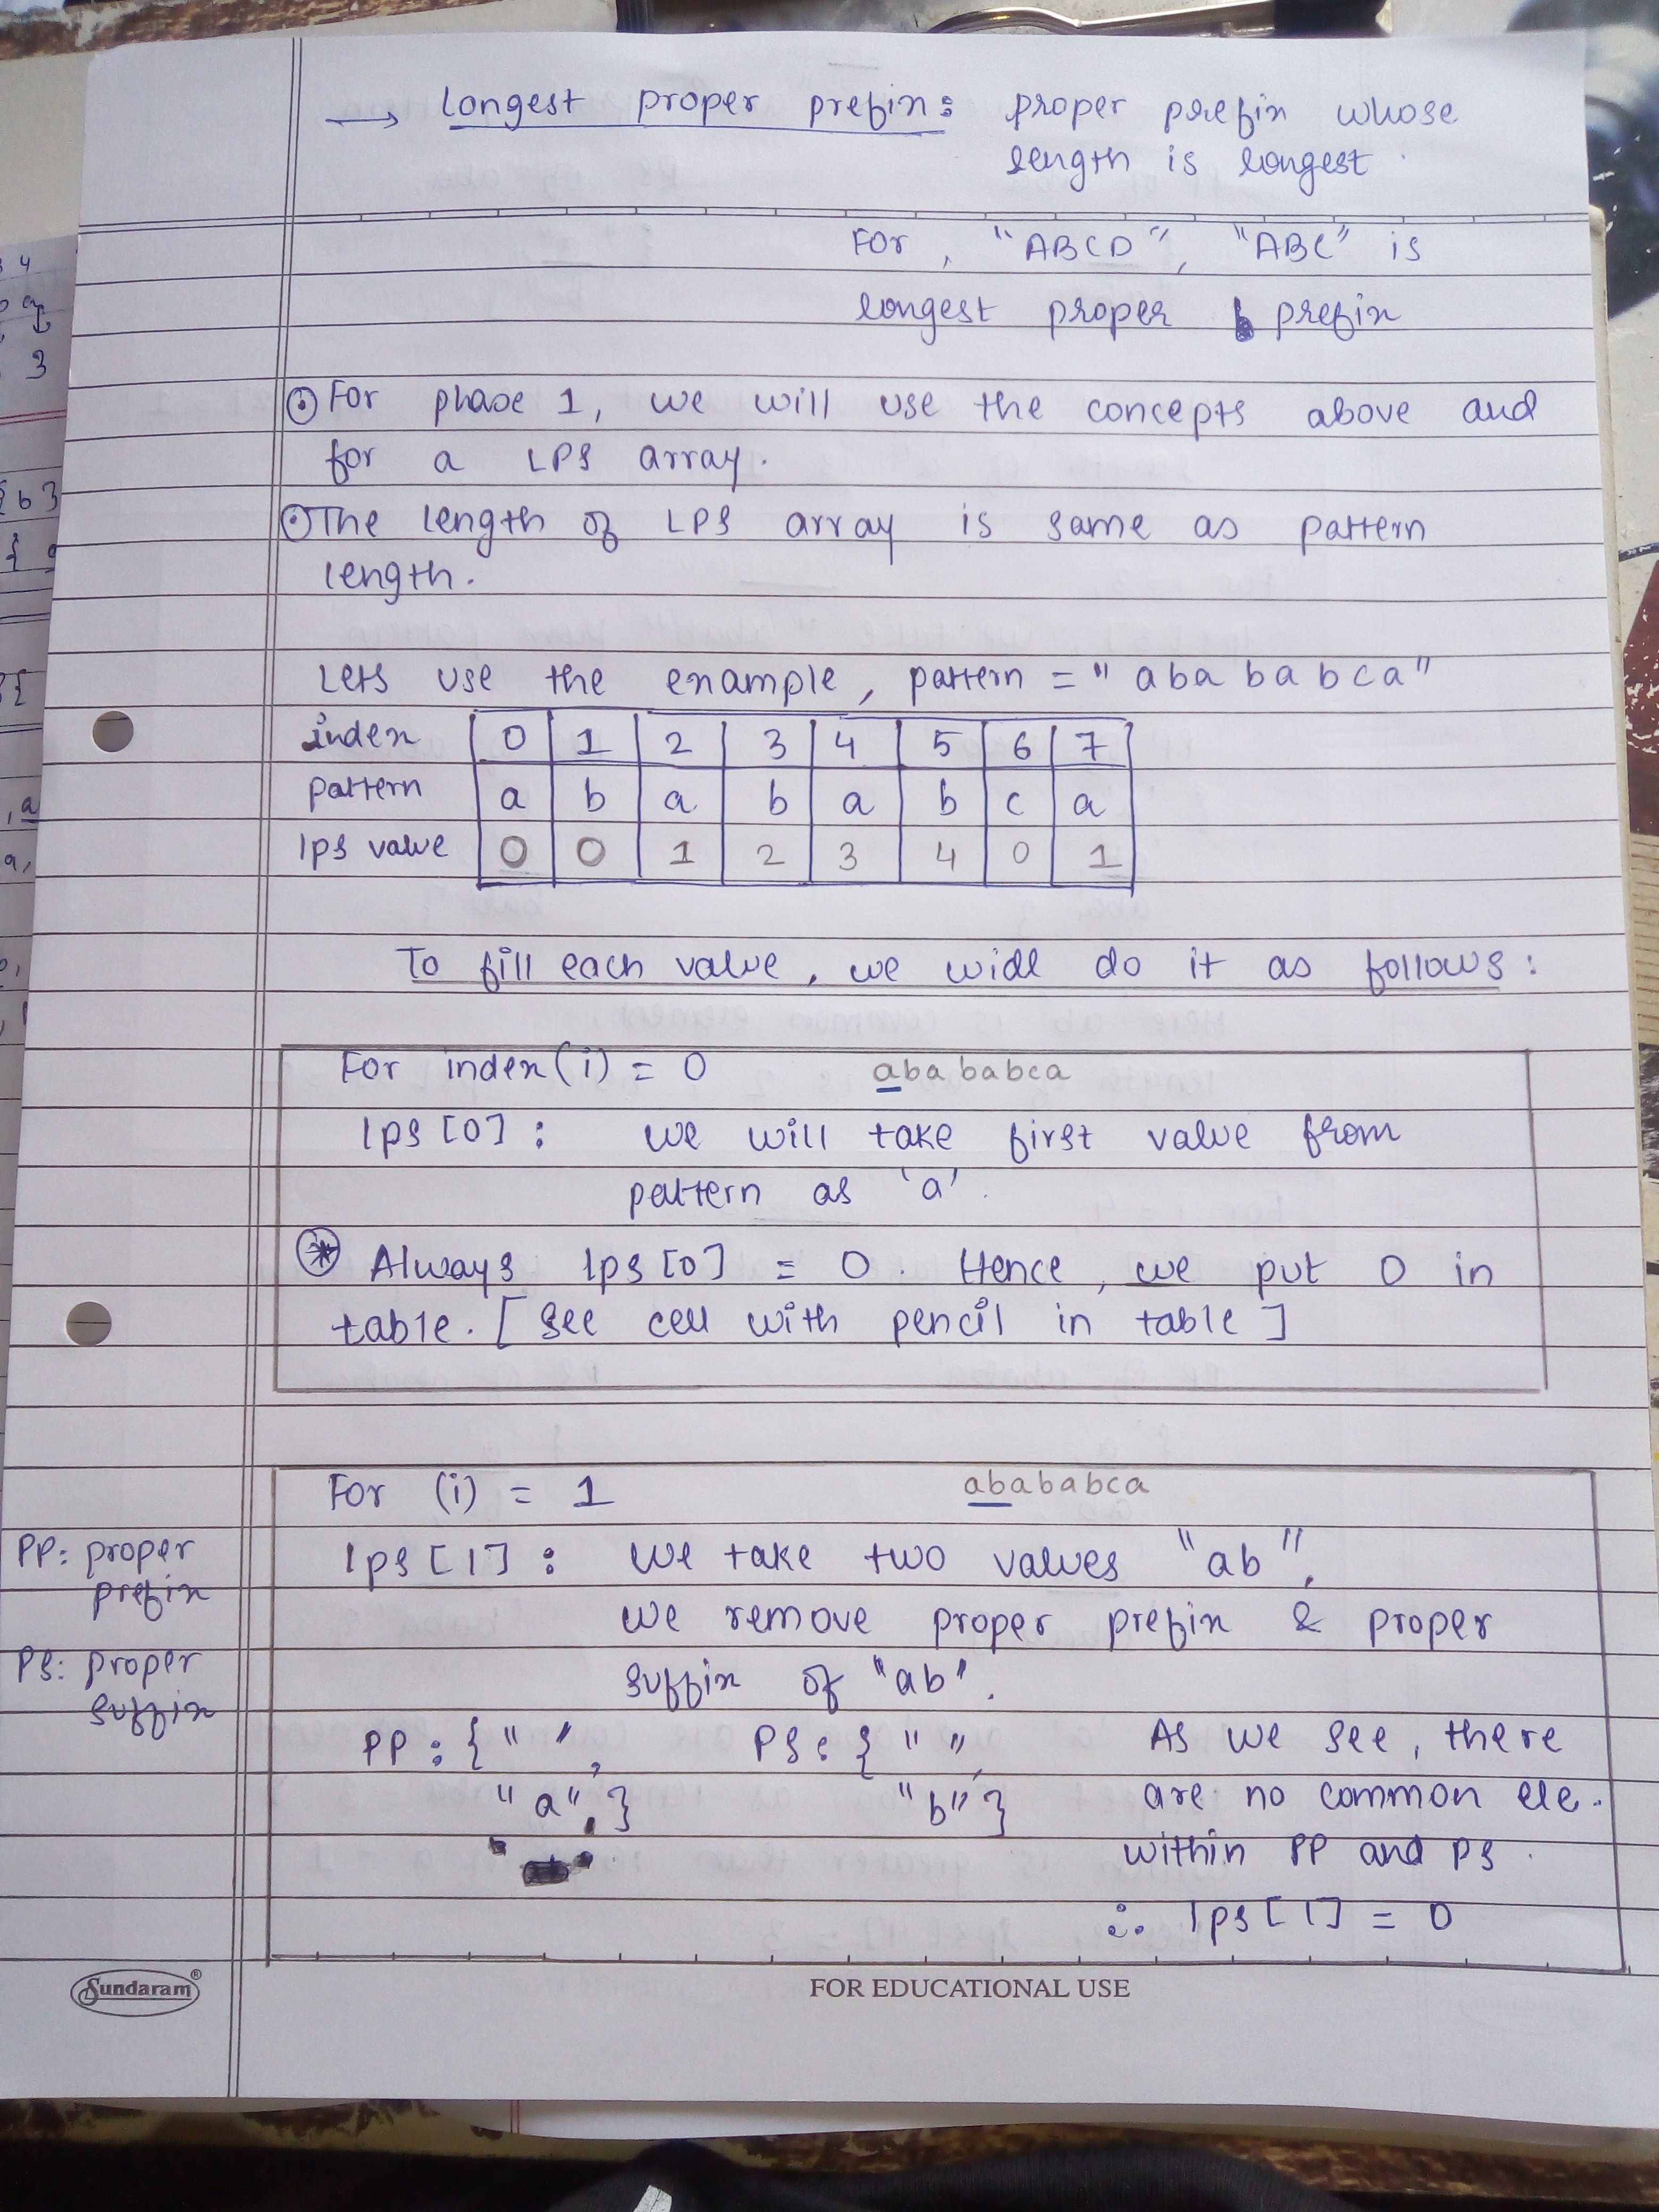 → Longest proper prefix: proper prefix whose
length is longest.
For, "ABCD", "ABC" is
longest proper prefix
⊙ For phase 1, we will use the concepts above and
for a LPS array.
⊙ The length of LPS array is same as pattern
length.
Lets use the example, pattern = "abababca"
index 0 1 2 3 4 5 6 7
pattern a b a b a b c a
lps value 0 0 1 2 3 4 0 1
To fill each value, we will do it as follows:
For index(i) = 0 abababca
lps[0]: we will take first value from
pattern as 'a'.
* Always lps[0] = 0. Hence, we put 0 in
table. [see cell with pencil in table]
For (i) = 1 abababca
PP: proper
prefix
PS: proper
suffix
lps[1]: we take two values "ab",
we remove proper prefix & proper
suffix of "ab".
PP: {" ", PS: {" ", As we see, there
"a",} "b"} are no common ele.
within PP and PS.
∴ lps[1] = 0
Sundaram®
FOR EDUCATIONAL USE
3 4
3
{b}
{
,a
a,